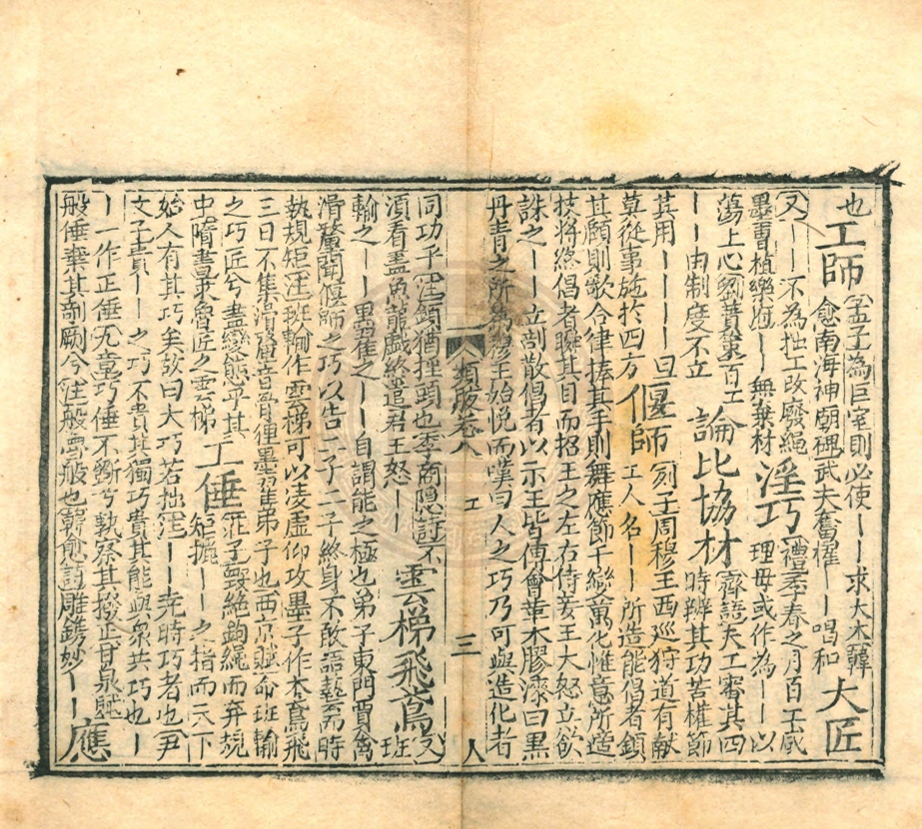 也工師孟子為巨室則必使——求大木韓
愈南海神廟碑武夫奮櫂—唱和大匠
又——不為拙工改廢繩
墨曹植樂府—無棄材淫巧禮季春之月百工咸
理毋或作為——以
蕩上心劉蕡策百工
——由制度不立論比協材齊語夫工審其四
時辨其功苦權節
其用————曰
莫從事施於四方偃師列子周穆王西巡狩道有献
工人名——所造能倡者鎮
其頤則歌合律捧其手則舞應節千變萬化惟意所適
技將終倡者瞬其目而招王之左右侍妾王大怒立欲
誅之——立剖散倡者以示王皆傅會革木膠漆白黒
丹青之所為穆王始悅而嘆曰人之巧乃可與造化者
類腋卷八 工 三 人
同功乎注鎮猶捶頭也李商隠詩不
須看盡魚龍戯終遣君王怒——雲梯飛鳶又
班
輸之——墨翟之——自謂能之極也弟子東門賈禽
滑釐聞偃師之巧以告二子二子終身不敢語藝而時
執規矩注班輸作雲梯可以凌虚仰攻墨子作木鳶飛
三日不集滑釐音骨狸墨翟弟子也西京賦命班輸
之巧匠兮盡變態乎其
中隋書天魯匠之雲梯工倕莊子毀絶鉤繩而弃規
矩攦——之指而天下
始人有其巧矣故曰大巧若拙注——堯時巧者也尹
文子貴——之巧不貴其獨巧貴其能與衆共巧也—
—一作正倕九章巧倕不斲兮孰察其撥正甘泉賦
般倕棄其剞劂今注般魯般也韓愈詩雕鐫妙——應